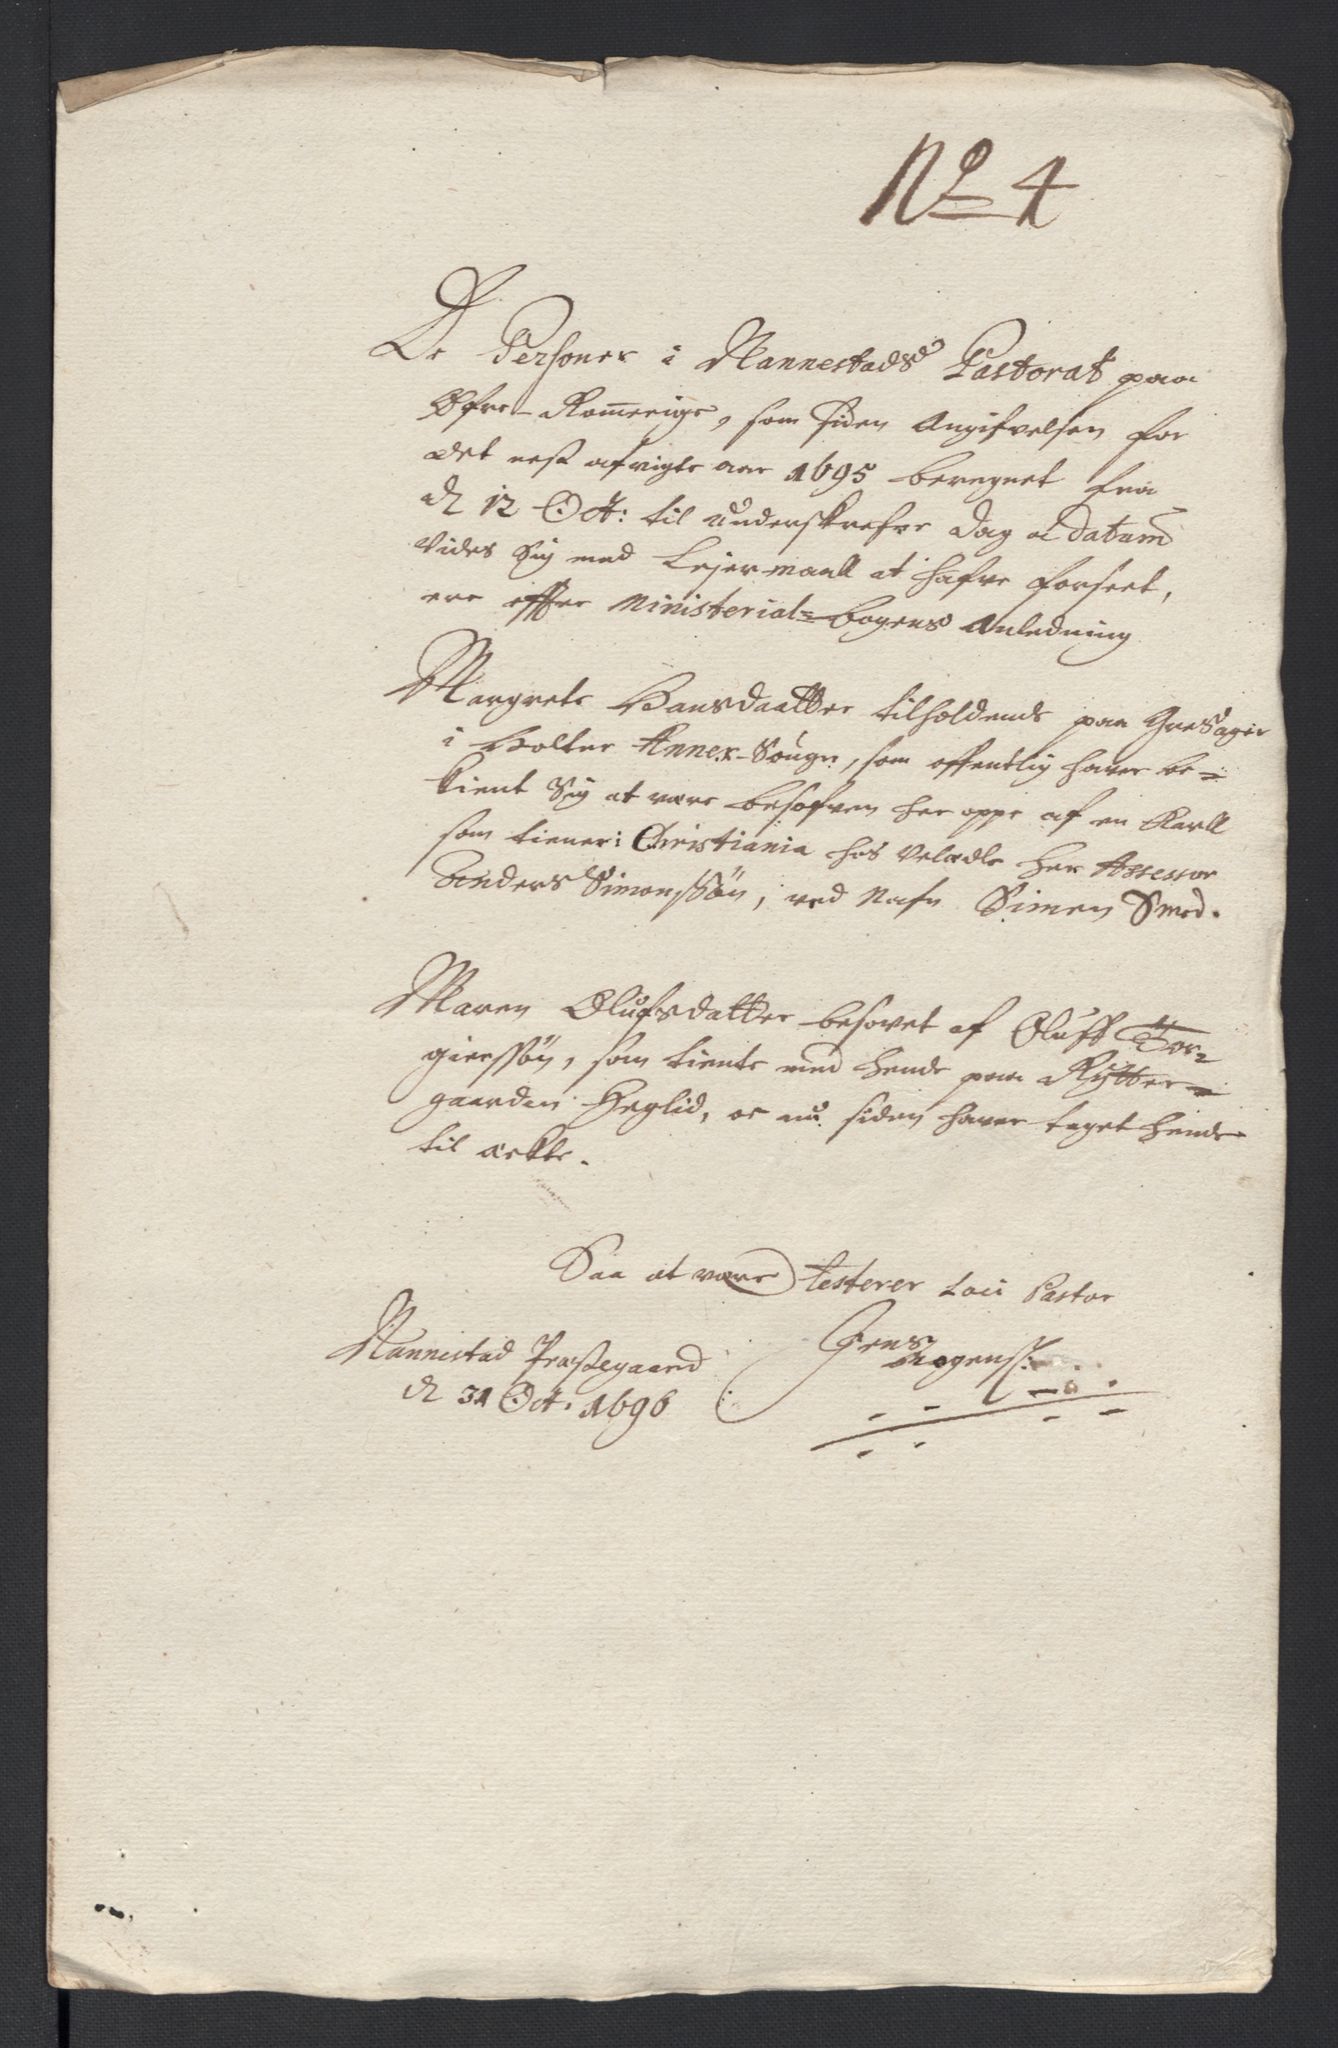 No 4
De Personer i Nannestads Pastorat paa
Øfre-Romerige, som siden Angifvelsen for
det nest afvigte aar 1695 beregnet fra
d 12 Oct: til underskrefne dag oc datum
vides Sig med Lejermaall at hafve forseet,
ere effter Ministerial=bogens Anledning
Margrete Hansdaatter tilholdende paa
i Holter Annex-Sougn, som offentlig haver be=
kient Sig at være besofven her oppe af en Karll
som tiener i Christiania hos Velædle Her Assessor
Anders Simonssøn, ved Nafn Simen Smed.
Maren Olufsdatter besovet af Oluff Tor=
gierssøn, som tiente med hende paa Rytter=
gaarden Heglid, oc nu siden haver taget hende
til ækte.
Saa at være testerer Loci Pastor
Nannestad Præstegaard
d 31 Oct. 1696
Jens
Mogenss: